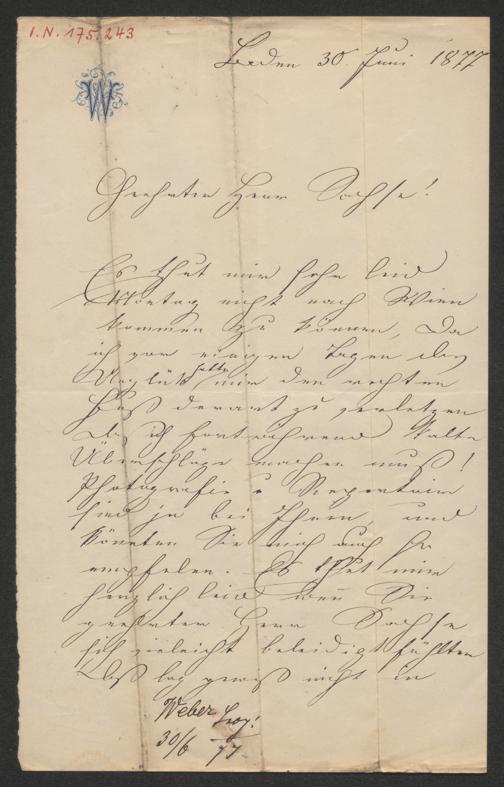 I.N. 175.243
W
Baden 30. Juni 1877
Geehrter Herr Sachse!
Es thut mir sehr leid
Montag nicht nach Wien
kommen zu können, da
ich vor einigen Tagen das
Unglük hatte mir den rechten
Fuß derart zu verletzen
das ich fortwährend kalte
Überschläge machen muß!
Photografie u Repertoir
sind ja bei Ihnen, und
könnten Sie mich auch so
empfelen. Es thut mir
herzlich leid wenn Sie
geehrter Herr Sachse
sich vieleicht beleidigt fühlten
das lag gewiß nicht in
Weber
30/6 77